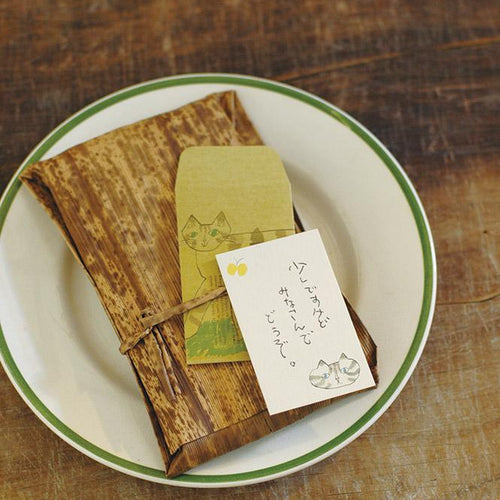 少しですけど
みなさんで
どうぞ。